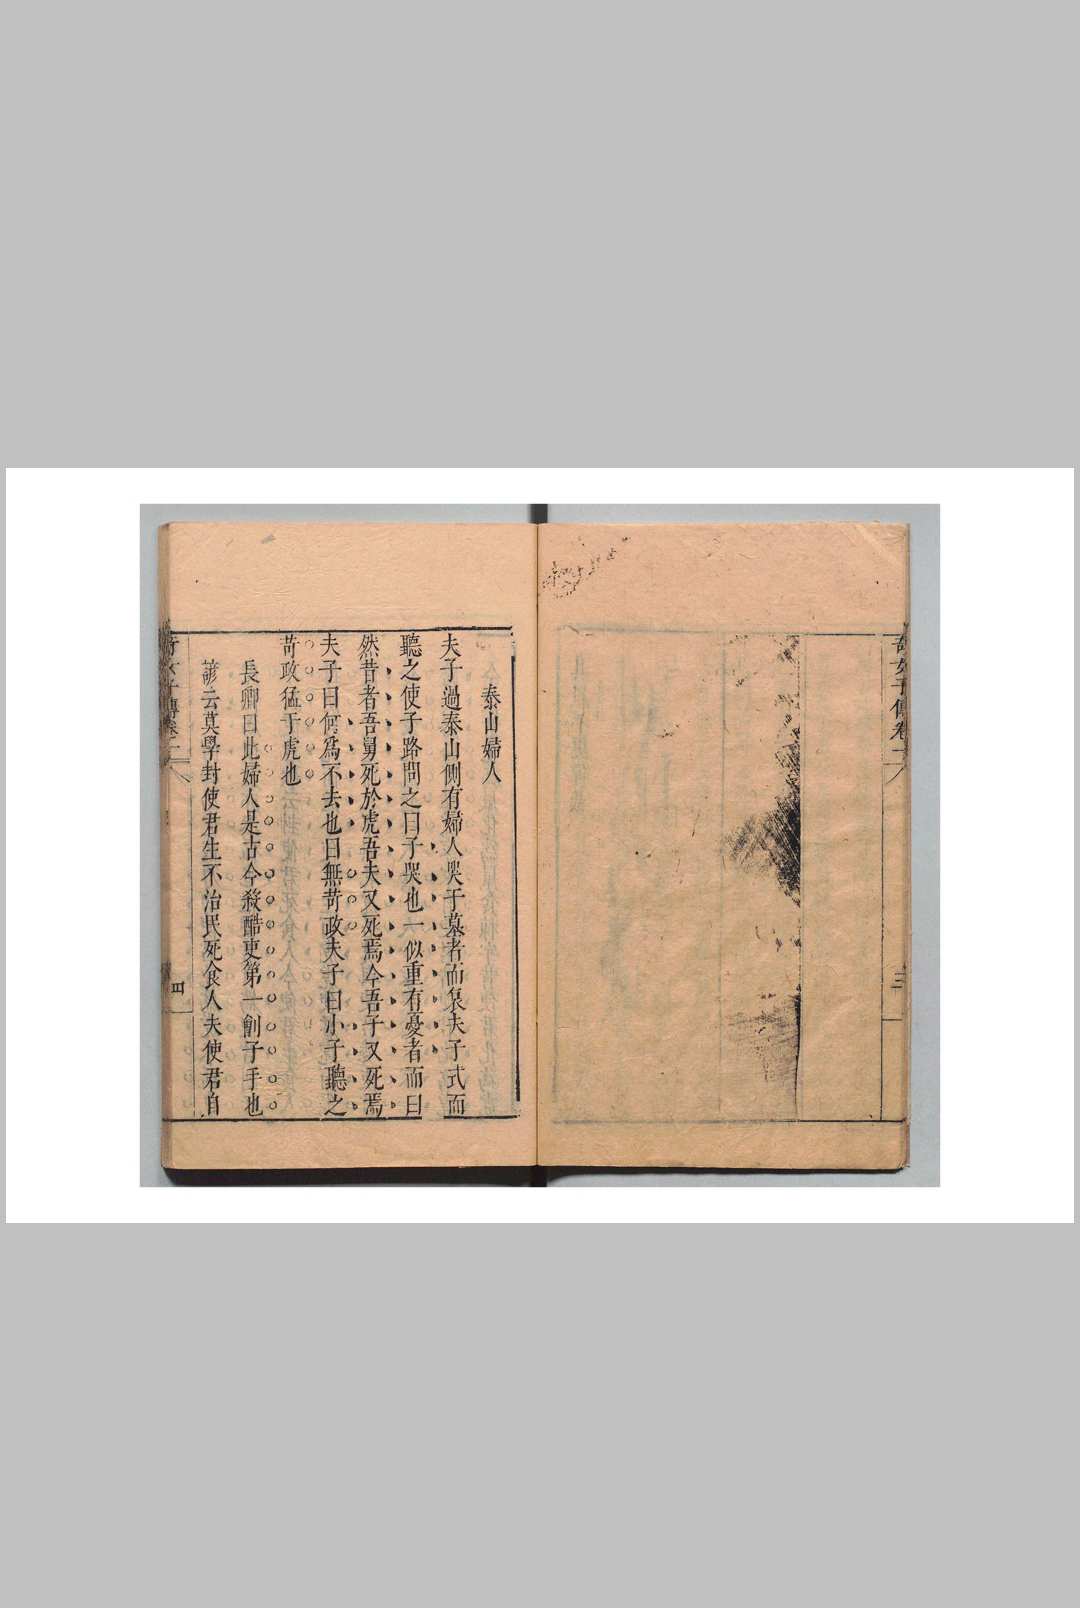 奇女子傳卷二
三
泰山婦人
夫子過泰山側有婦人哭于墓者而哀夫子式而
聽之使子路問之曰子哭也一似重有憂者而曰
然昔者吾舅死於虎吾夫又死焉今吾子又死焉
夫子曰何爲不去也曰無苛政夫子曰小子聽之
苛政猛于虎也
長卿曰此婦人是古今殺酷吏第一劊子手也
諺云莫學封使君生不治民死食人夫使君自
奇女子傳卷二
四